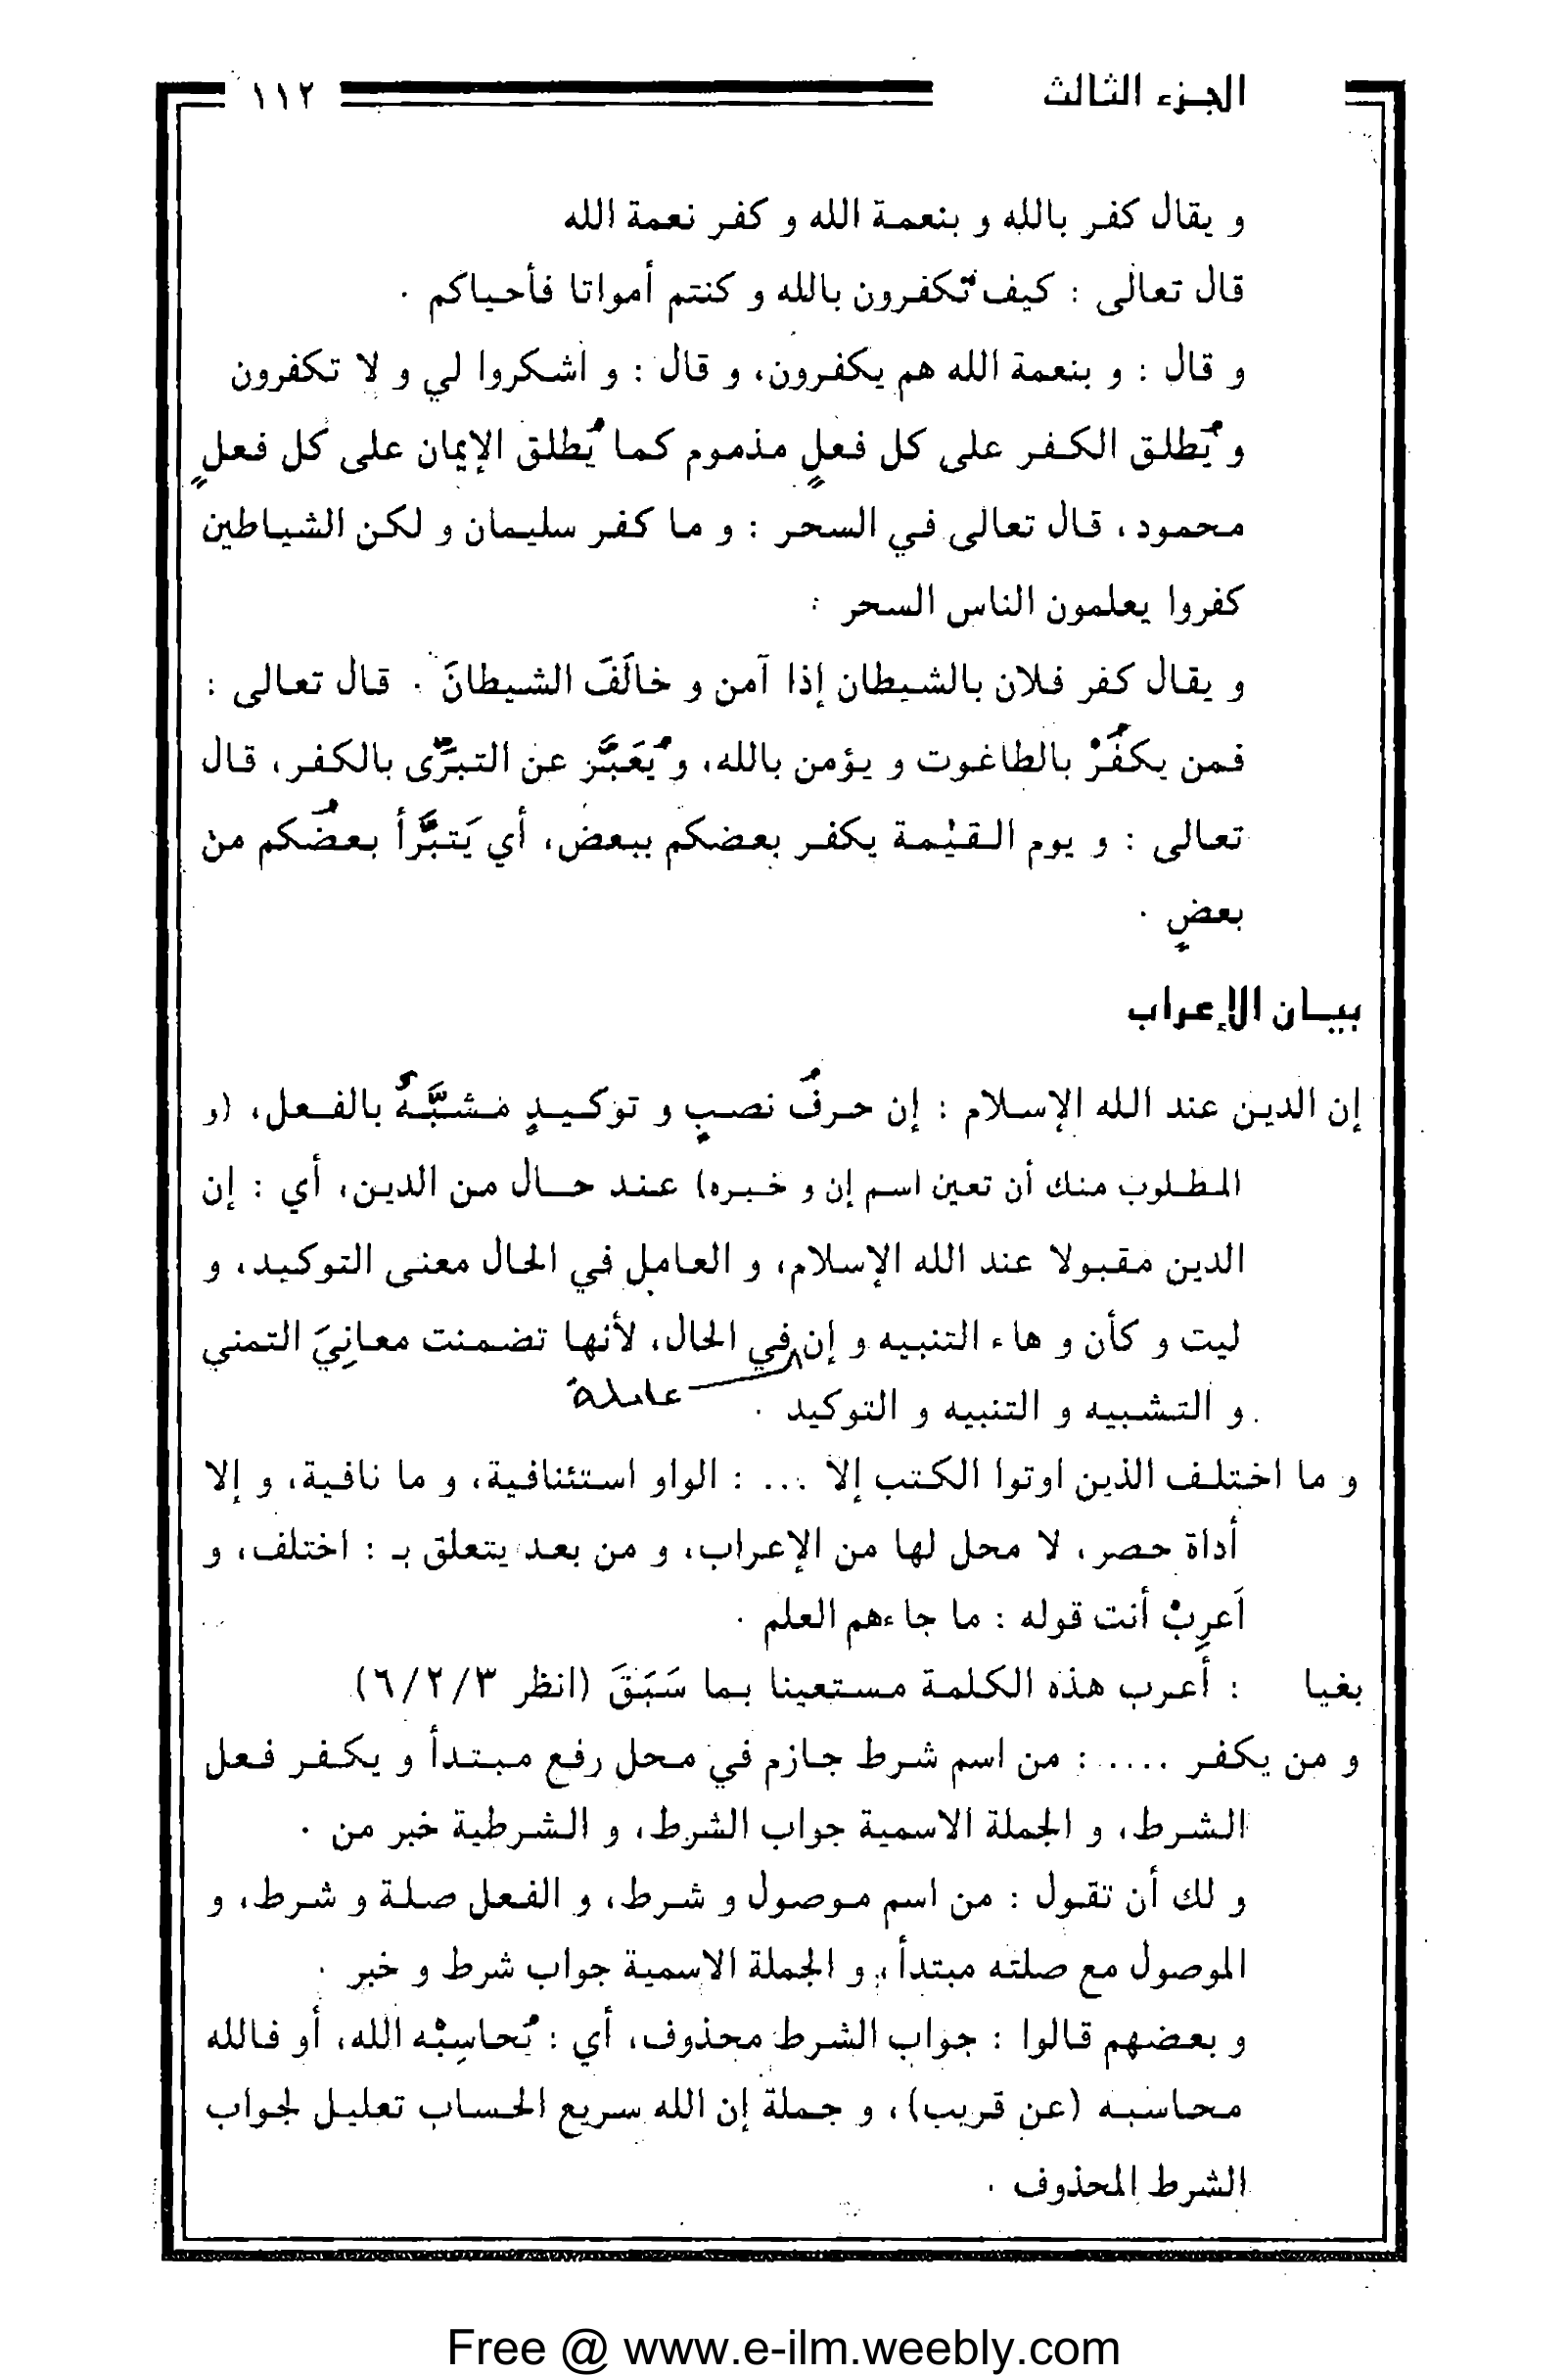 الجزء الثالث ١١٢
و يقال كفر بالله و بنعمة الله و كفر نعمة الله
قال تعالى : كيف تكفرون بالله و كنتم أمواتا فأحياكم .
و قال : و بنعمة الله هم يكفرون، و قال : و اشكروا لي و لا تكفرون
و يُطلق الكفر على كل فعلٍ مذموم كما يُطلق الإيمان على كل فعلٍ
محمود، قال تعالى في السحر : و ما كفر سليمان و لكن الشياطين
كفروا يعلمون الناس السحر :
و يقال كفر فلان بالشيطان إذا آمن و خالَفَ الشيطانَ . قال تعالى :
فمن يكفُرْ بالطاغوت و يؤمن بالله، و يُعَبَّر عن التبرِّى بالكفر، قال
تعالى : و يوم القيٰمة يكفر بعضكم ببعض، أي يَتبَّرأ بعضُكم من
بعضٍ .
بيان الإعراب
إن الدين عند الله الإسلام : إن حرفُ نصبٍ و توكيدٍ مشبَّهٌ بالفعل، (و
المطلوب منك أن تعين اسم إن و خبره) عند حال من الدين، أي : إن
الدين مقبولا عند الله الإسلام، و العامل في الحال معنى التوكيد، و
ليت و كأن و هاء التنبيه و إن في الحال، لأنها تضمنت معانِيَ التمني
عاملة
و التشبيه و التنبيه و التوكيد .
و ما اختلف الذين اوتوا الكتب إلا ... : الواو استئنافية، و ما نافية، و إلا
أداة حصر، لا محل لها من الإعراب، و من بعد يتعلق بـ : اختلف، و
اَعرِبْ أنت قوله : ما جاءهم العلم .
بغيا : أعرب هذه الكلمة مستعينا بما سَبَقَ (انظر ٦/٢/٣)
و من يكفر .... : من اسم شرط جازم في محل رفع مبتدأ و يكفر فعل
الشرط، و الجملة الاسمية جواب الشرط، و الشرطية خبر من .
و لك أن تقول : من اسم موصول و شرط، و الفعل صلة و شرط، و
الموصول مع صلته مبتدأ، و الجملة الاسمية جواب شرط و خبر .
و بعضهم قالوا : جواب الشرط محذوف، أي : يُحاسِبْه الله، أو فالله
محاسبه (عن قريب)، و جملة إن الله سريع الحساب تعليل لجواب
الشرط المحذوف .
Free @ www.e-ilm.weebly.com